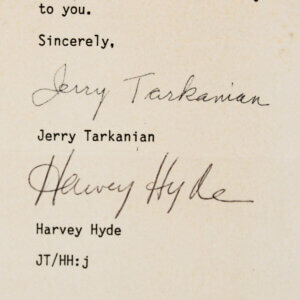 to you.
Sincerely,
Jerry Tarkanian
Jerry Tarkanian
Harvey Hyde
Harvey Hyde
JT/HH:j